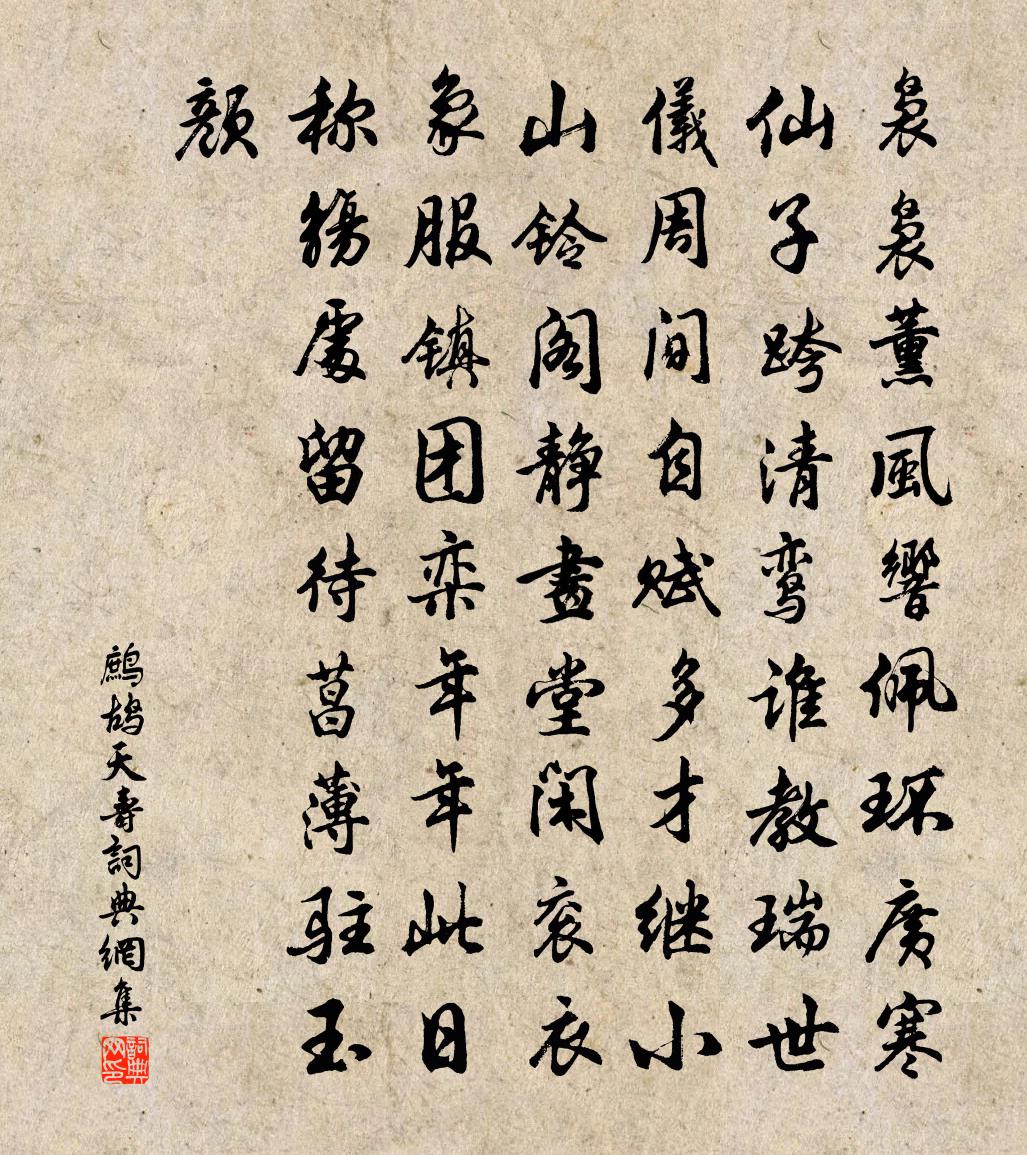 袅袅薰風響佩环廣寒
仙子跨清鸾谁教瑞世
儀周间自赋多才继小
山铃阁静畫堂闲衮衣
象服镇团栾年年此日
称觴處留待菖薄驻玉
颜
鷓鴣天壽詞典網集
詞典网印